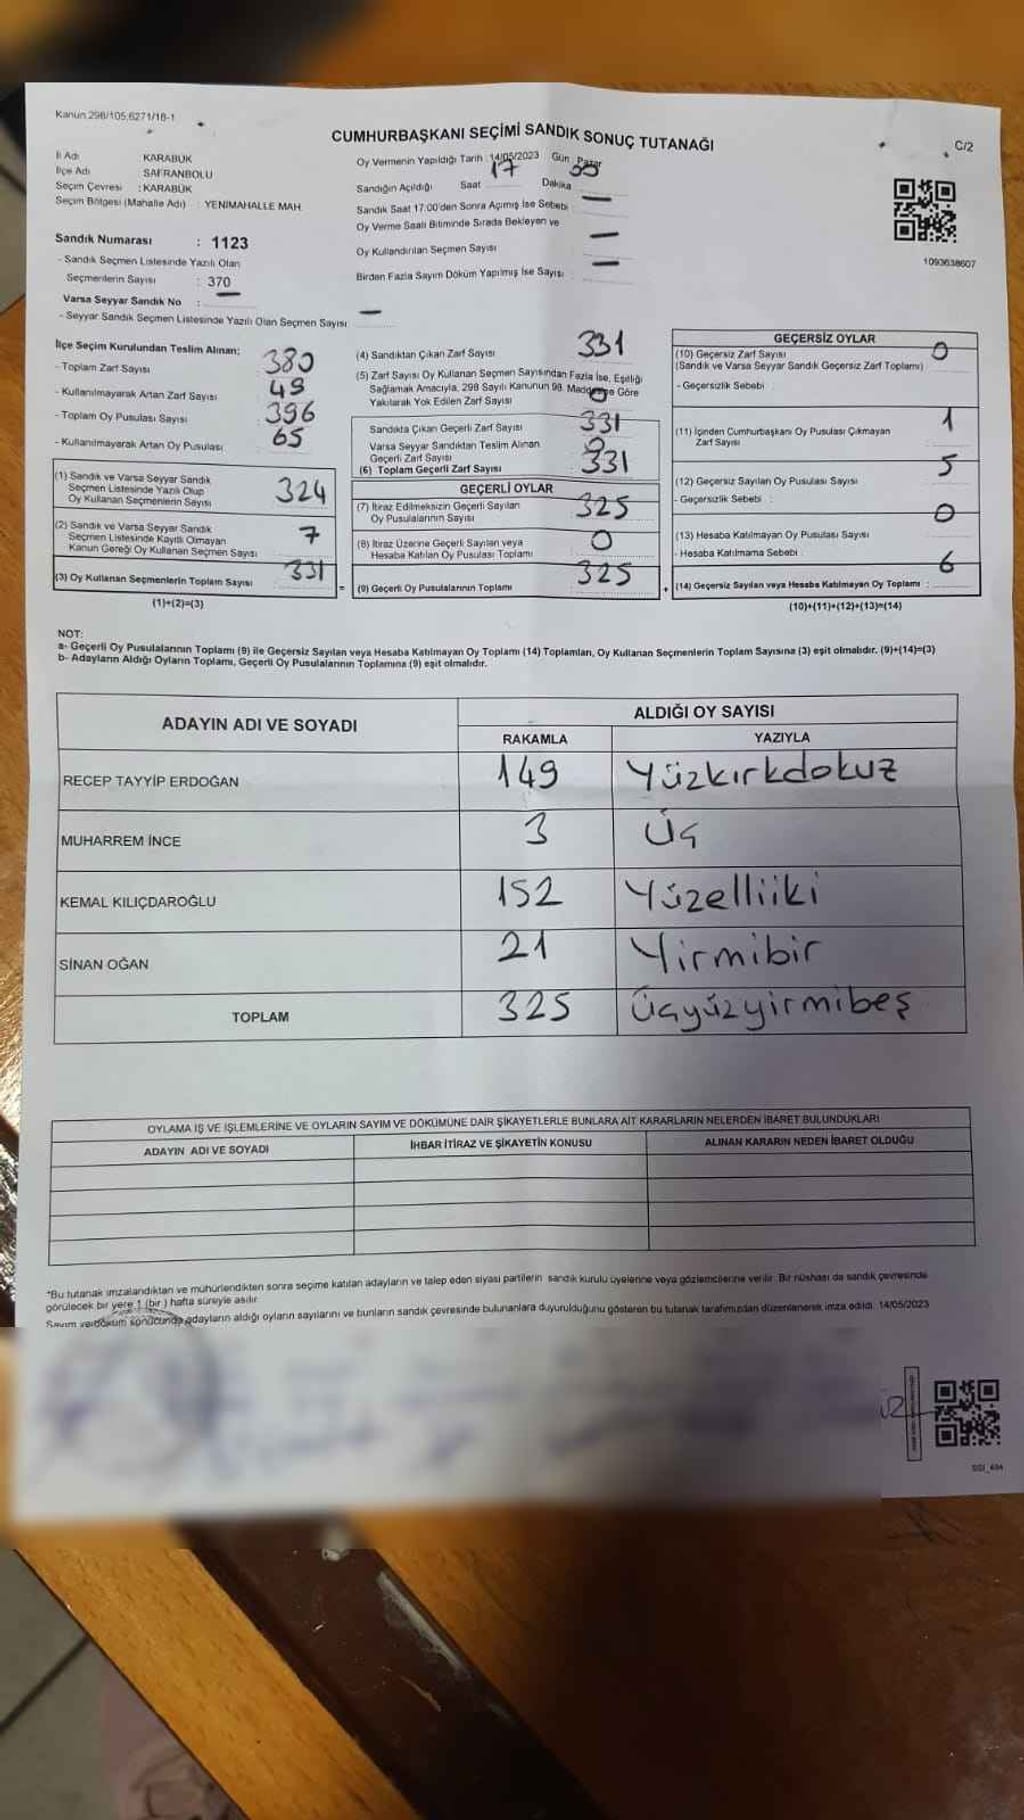 Kanun:298/105,6271/18-1
CUMHURBAŞKANI SEÇİMİ SANDIK SONUÇ TUTANAĞI
C/2
İl Adı KARABÜK
İlçe Adı SAFRANBOLU
Seçim Çevresi : KARABÜK
Seçim Bölgesi (Mahalle Adı) : YENİMAHALLE MAH.
Sandık Numarası : 1123
- Sandık Seçmen Listesinde Yazılı Olan
Seçmenlerin Sayısı : 370
Varsa Seyyar Sandık No : —
- Seyyar Sandık Seçmen Listesinde Yazılı Olan Seçmen Sayısı —
Oy Vermenin Yapıldığı Tarih : 14/05/2023 Gün : Pazar
Sandığın Açıldığı Saat 17 Dakika 55
Sandık Saat 17:00'den Sonra Açımış İse Sebebi —
Oy Verme Saati Bitiminde Sırada Bekleyen ve
Oy Kullandırılan Seçmen Sayısı —
Birden Fazla Sayım Döküm Yapılmış İse Sayısı —
1093638607
İlçe Seçim Kurulundan Teslim Alınan;
- Toplam Zarf Sayısı 380
- Kullanılmayarak Artan Zarf Sayısı 49
- Toplam Oy Pusulası Sayısı 396
- Kullanılmayarak Artan Oy Pusulası 65
(1) Sandık ve Varsa Seyyar Sandık
Seçmen Listesinde Yazılı Olup
Oy Kullanan Seçmenlerin Sayısı 324
(2) Sandık ve Varsa Seyyar Sandık
Seçmen Listesinde Kayıtlı Olmayan
Kanun Gereği Oy Kullanan Seçmen Sayısı 7
(3) Oy Kullanan Seçmenlerin Toplam Sayısı 331
(1)+(2)=(3)
(4) Sandıktan Çıkan Zarf Sayısı 331
(5) Zarf Sayısı Oy Kullanan Seçmen Sayısından Fazla İse, Eşitliği
Sağlamak Amacıyla, 298 Sayılı Kanunun 98. Maddesine Göre
Yakılarak Yok Edilen Zarf Sayısı 0
Sandıkta Çıkan Geçerli Zarf Sayısı 331
Varsa Seyyar Sandıktan Teslim Alınan
Geçerli Zarf Sayısı 0
(6) Toplam Geçerli Zarf Sayısı 331
GEÇERLİ OYLAR
(7) İtiraz Edilmeksizin Geçerli Sayılan
Oy Pusulalarının Sayısı 325
(8) İtiraz Üzerine Geçerli Sayılan veya
Hesaba Katılan Oy Pusulası Toplamı 0
= (9) Geçerli Oy Pusulalarının Toplamı 325
GEÇERSİZ OYLAR
(10) Geçersiz Zarf Sayısı 0
(Sandık ve Varsa Seyyar Sandık Geçersiz Zarf Toplamı)
- Geçersizlik Sebebi :
(11) İçinden Cumhurbaşkanı Oy Pusulası Çıkmayan 1
Zarf Sayısı
(12) Geçersiz Sayılan Oy Pusulası Sayısı 5
- Geçersizlik Sebebi :
(13) Hesaba Katılmayan Oy Pusulası Sayısı 0
- Hesaba Katılmama Sebebi :
+ (14) Geçersiz Sayılan veya Hesaba Katılmayan Oy Toplamı : 6
(10)+(11)+(12)+(13)=(14)
NOT:
a- Geçerli Oy Pusulalarının Toplamı (9) ile Geçersiz Sayılan veya Hesaba Katılmayan Oy Toplamı (14) Toplamları, Oy Kullanan Seçmenlerin Toplam Sayısına (3) eşit olmalıdır. (9)+(14)=(3)
b- Adayların Aldığı Oyların Toplamı, Geçerli Oy Pusulalarının Toplamına (9) eşit olmalıdır.
ADAYIN ADI VE SOYADI ALDIĞI OY SAYISI
RAKAMLA YAZIYLA
RECEP TAYYİP ERDOĞAN 149 Yüzkırkdokuz
MUHARREM İNCE 3 Üç
KEMAL KILIÇDAROĞLU 152 Yüzelliiki
SİNAN OĞAN 21 Yirmibir
TOPLAM 325 Üçyüzyirmibeş
OYLAMA İŞ VE İŞLEMLERİNE VE OYLARIN SAYIM VE DÖKÜMÜNE DAİR ŞİKAYETLERLE BUNLARA AİT KARARLARIN NELERDEN İBARET BULUNDUKLARI
ADAYIN ADI VE SOYADI İHBAR İTİRAZ VE ŞİKAYETİN KONUSU ALINAN KARARIN NEDEN İBARET OLDUĞU
*Bu tutanak imzalandıktan ve mühürlendikten sonra seçime katılan adayların ve talep eden siyasi partilerin sandık kurulu üyelerine veya gözlemcilerine verilir. Bir nüshası da sandık çevresinde
görülecek bir yere 1 (bir) hafta süreyle asılır.
Sayım ve döküm sonucunda adayların aldığı oyların sayılarını ve bunların sandık çevresinde bulunanlara duyurulduğunu gösteren bu tutanak tarafımızdan düzenlenerek imza edildi. 14/05/2023